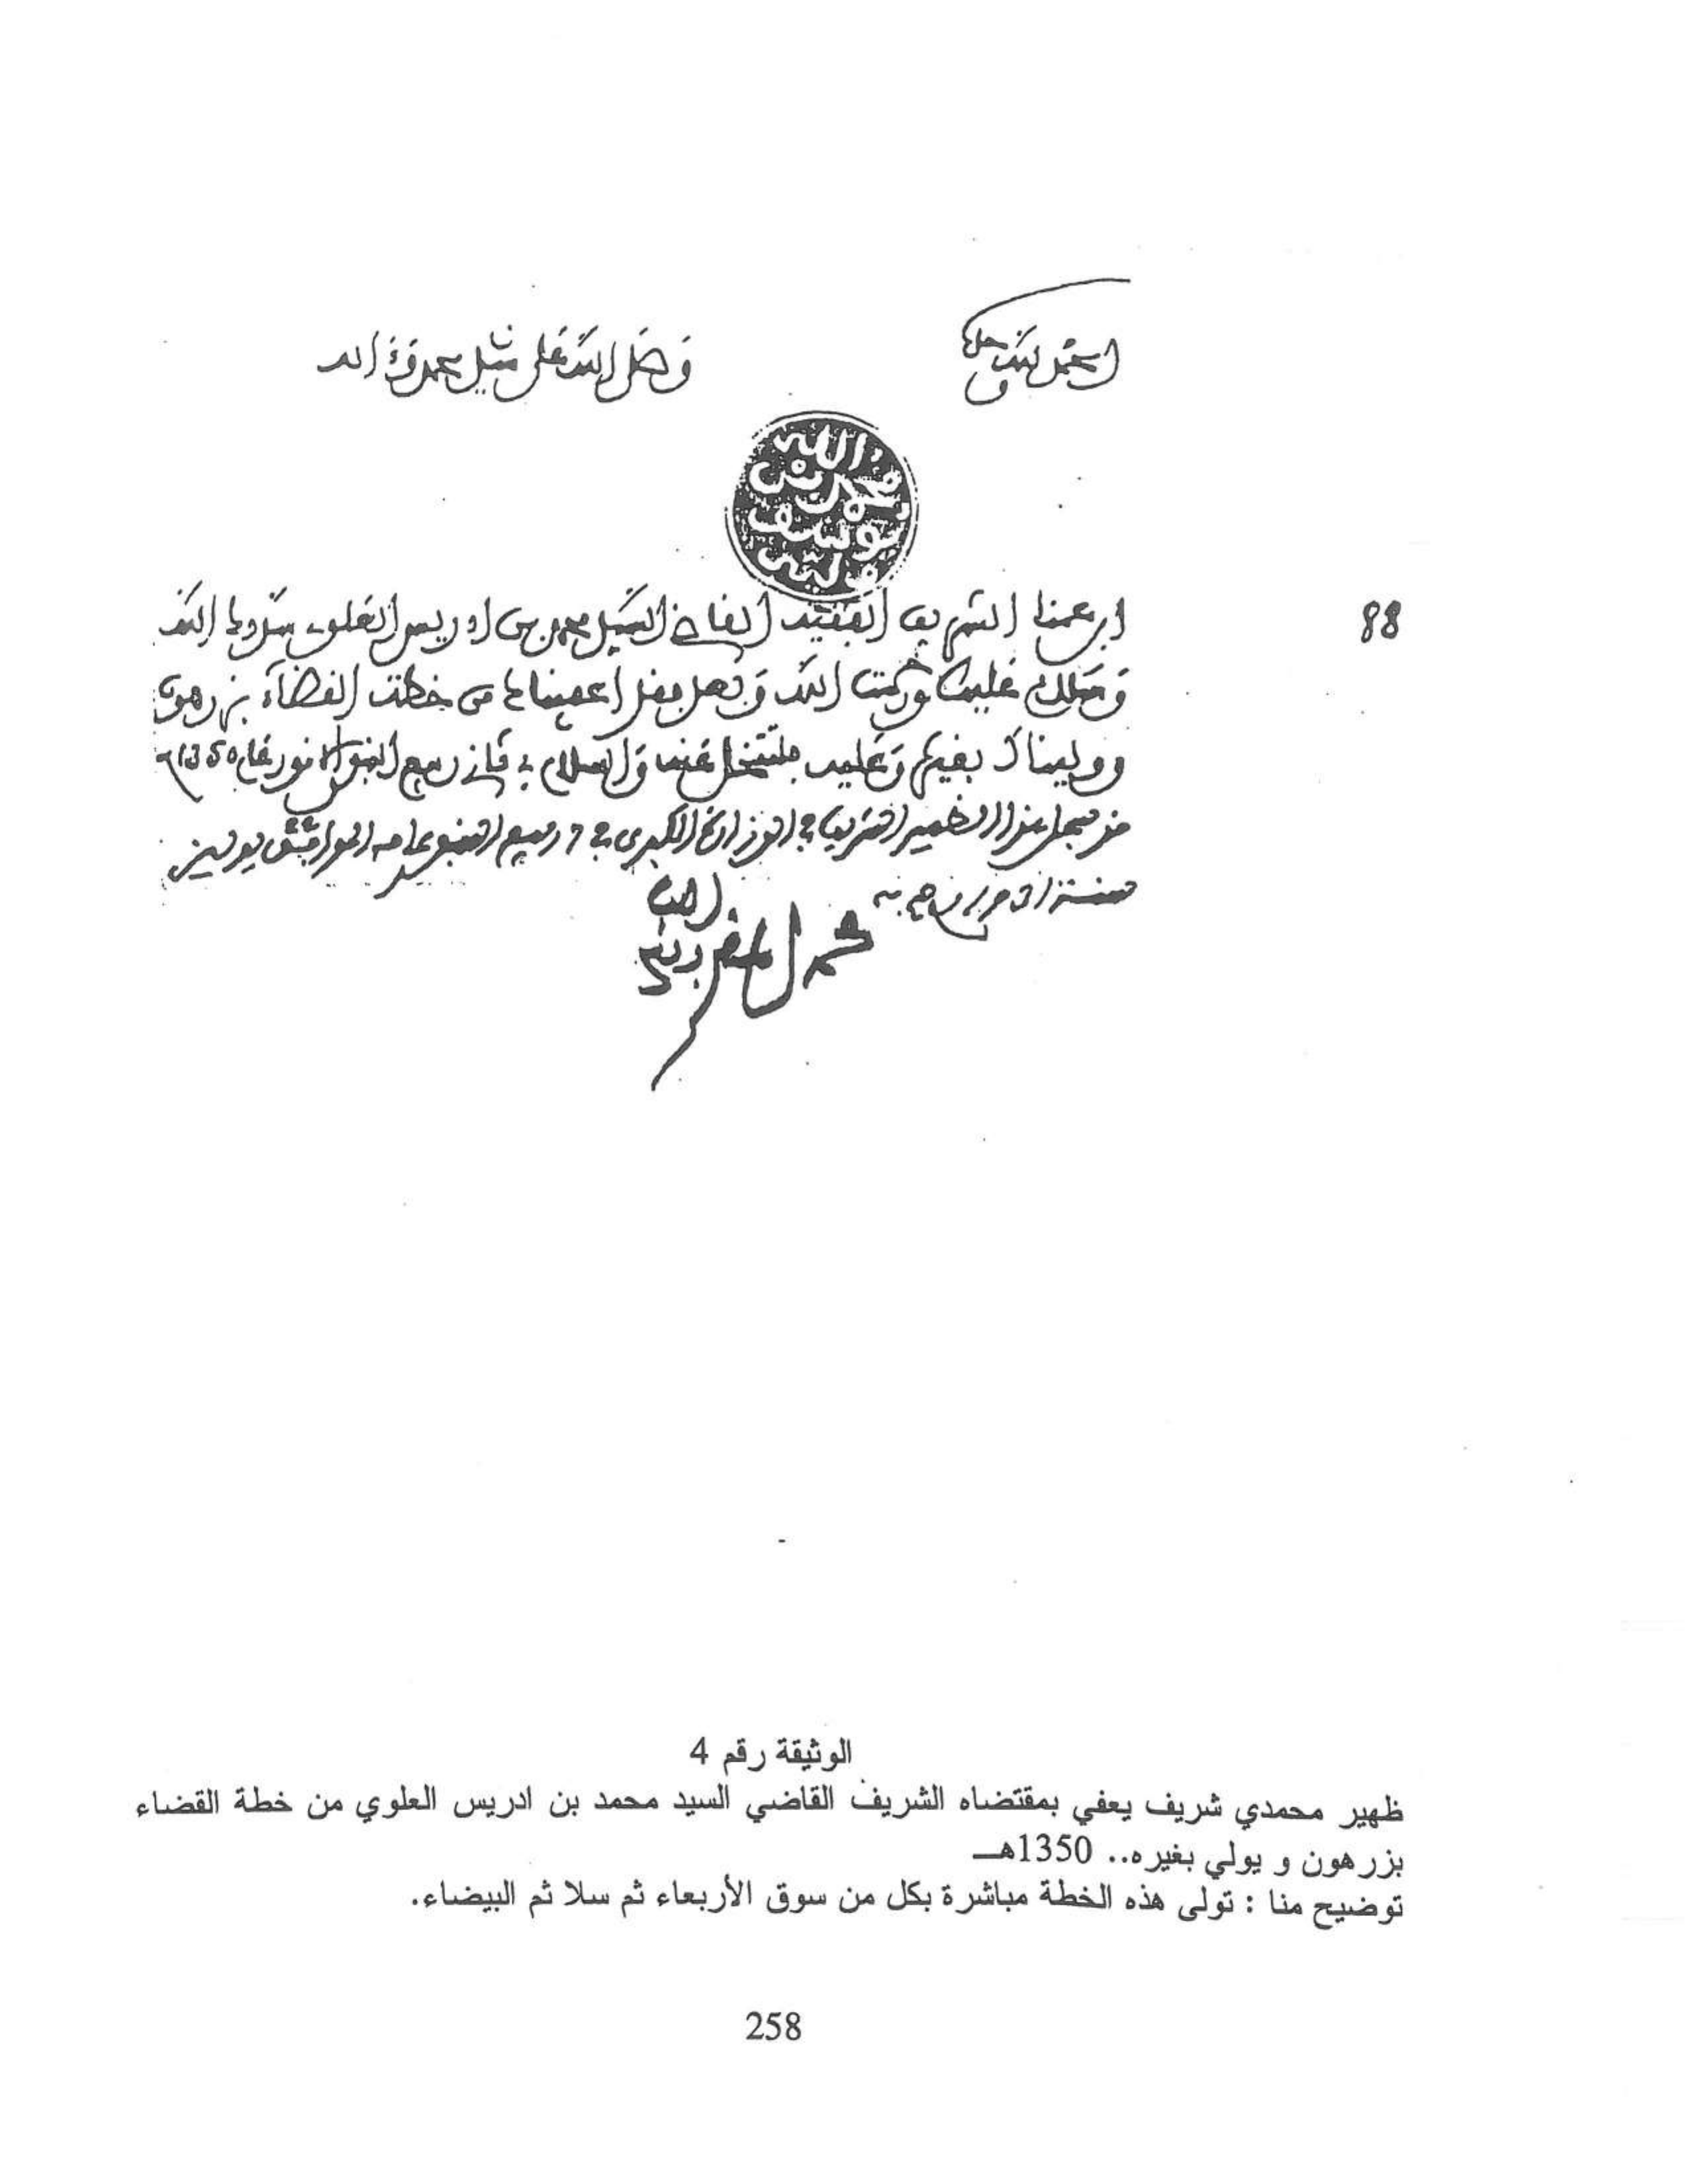 الحمد لله وحده
وصلى الله على سيدنا محمد وآله
الله
محمد بن
يوسف
وليه
88
ابن عمنا الشريف الفقيه القاضي السيد محمد بن ادريس العلوي سددك الله
وسلام عليك ورحمت الله وبعد فقد اعفيناك من خطة القضاء بزرهون
ووليناك بغيرها وعليه فلتتخل عنها والسلام في ثاني ربيع النبوي الانور عام 1350
سجل هذا الظهير الشريف في الوزارة الكبرى في 7 ربيع النبوي عامه الموافق يوليز
سنة
محمد المقري
الوثيقة رقم 4
ظهير محمدي شريف يعفي بمقتضاه الشريف القاضي السيد محمد بن ادريس العلوي من خطة القضاء
بزرهون و يولي بغيره.. 1350هـ
توضيح منا : تولى هذه الخطة مباشرة بكل من سوق الأربعاء ثم سلا ثم البيضاء.
258